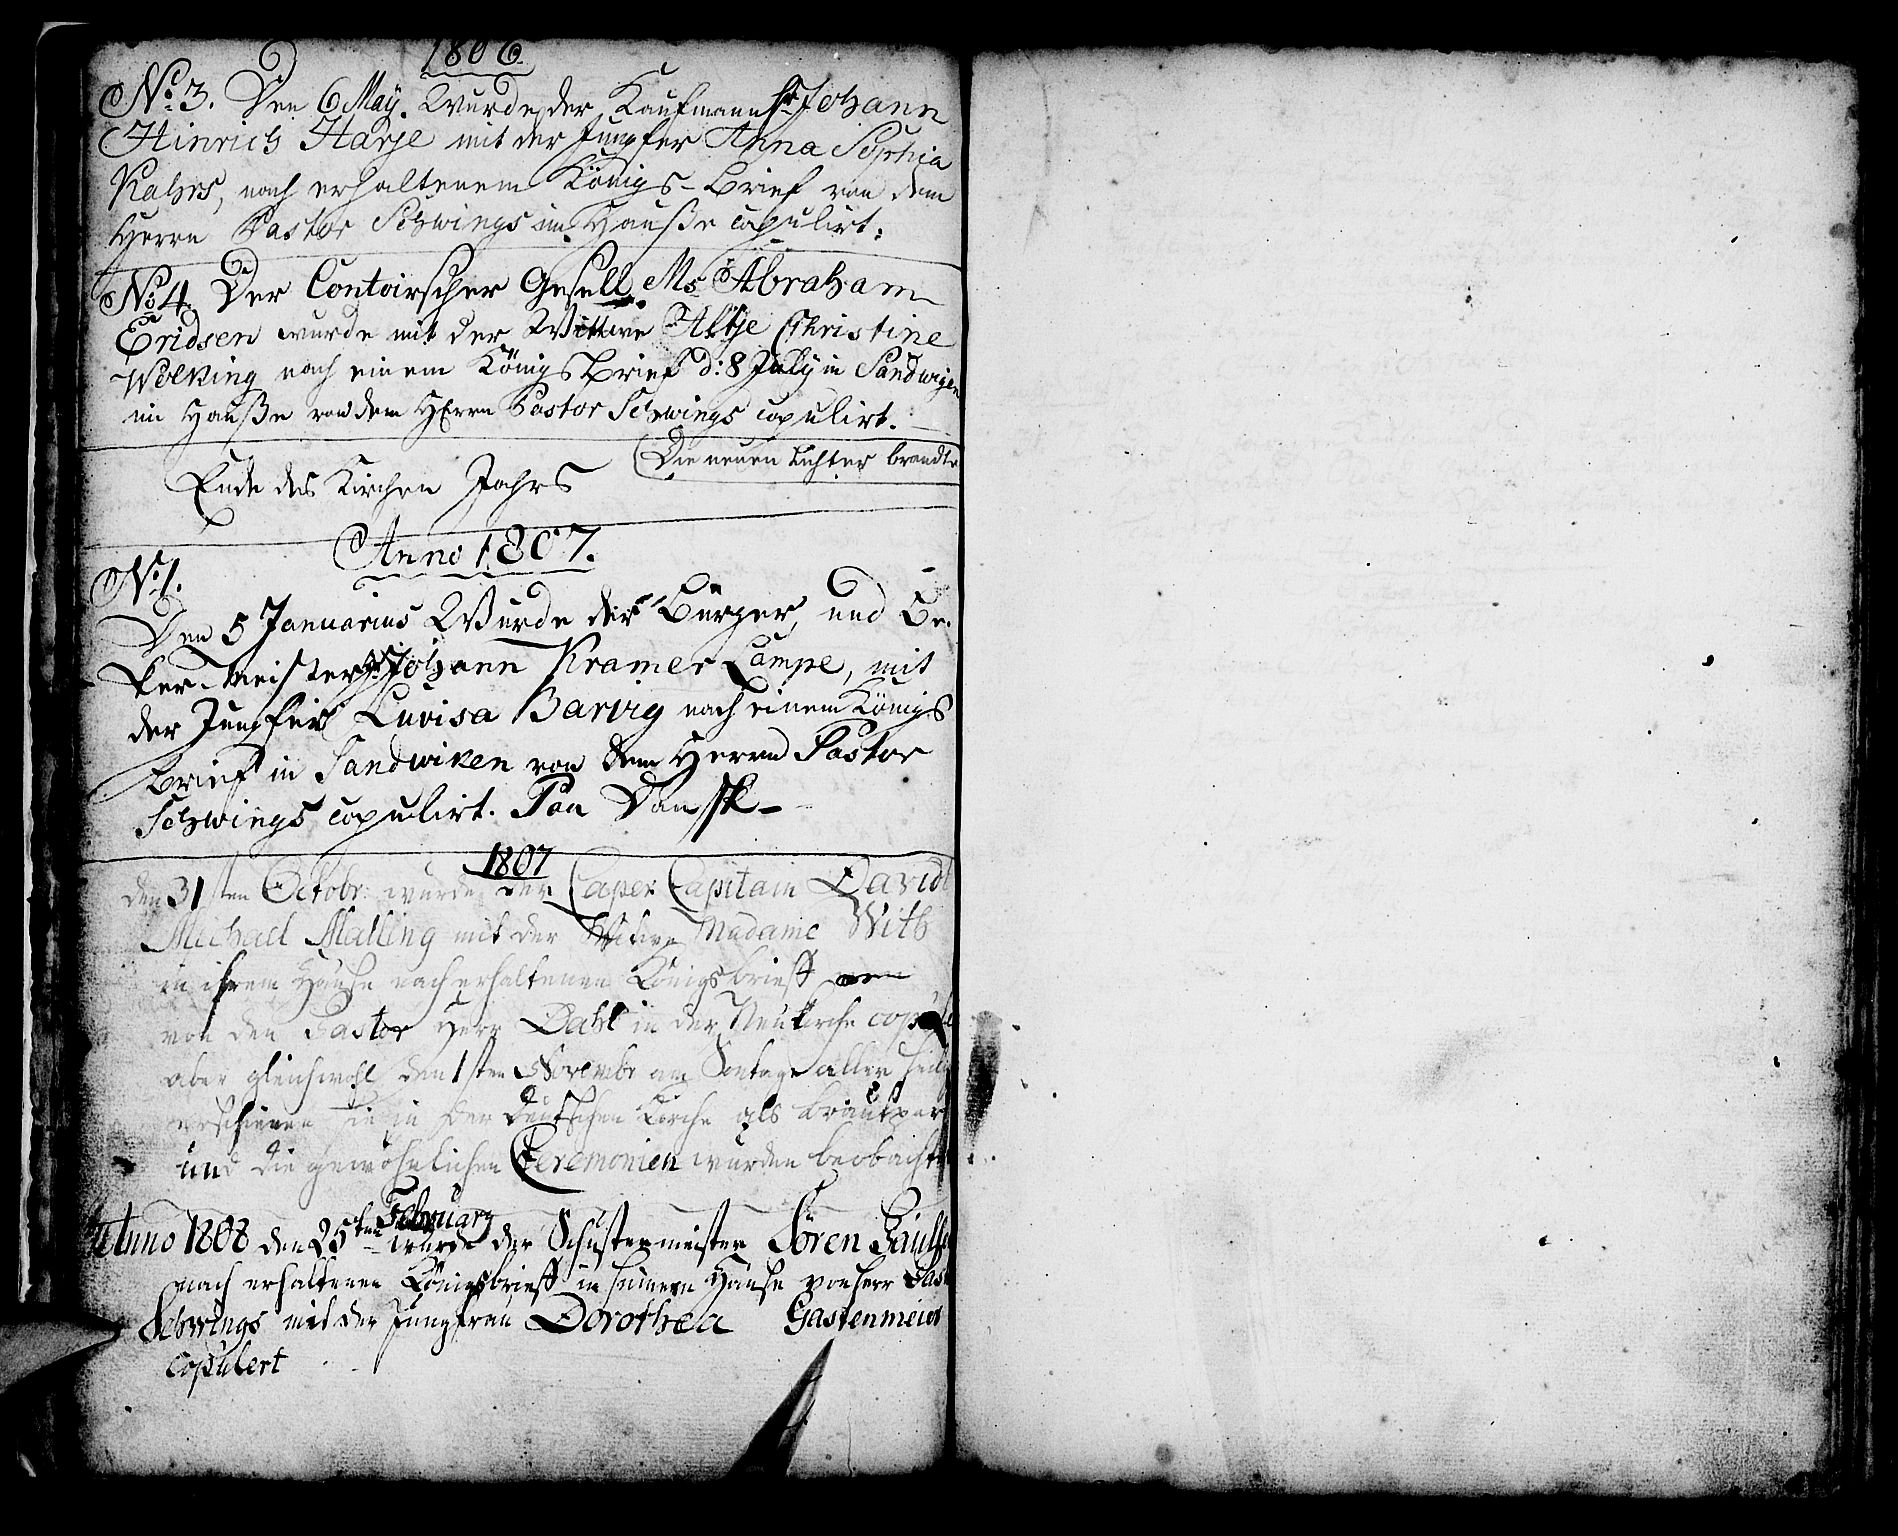 1806
No. 3. Den 6 May. Wurde der Kaufmann Hr. Johann
Hinrich Harje mit der Jungfer Anna Sophia
Kahrs, nach erhaltenem Königs-Brief von dem
Herrn Pastor Schwings im Hauße copulirt.
No 4. Der Contoirscher Gesell Ms Abraham
Eridsen wurde mit der Wittwe Altje Christine
Wölking nach einem Königs Brief d: 8 July in Sandwigen
im Hauße von dem Herrn Pastor Schwings copulirt.
(Die neuen Lichter brandte
Ende des Kirchen Jahrs
Anno 1807.
No 1.
Den 5 Januarius Wurde der Bürger, und Be-
ker-Meister Hr. Johann Kramer Lampe, mit
der Jungfer Luvisa Barvig nach einem Königs
Brief in Sandwiken von dem Herrn Pastor
Schwings copulirt. Paa Dansk-
1807
den 31sten Octobr: wurde der Caper Capitain David
Michael Malling mit der Witwe Madame With
in ihrem Hause nach erhaltenen Königsbrieff
von den Pastor Herr Dahl in der Neukirche
aber gleichwohl den 1sten Novembr am Sontage aller
erschienen sie in der Deutschen Kirche als
und die gewöhnlichen Ceremonien wurden
Anno 1808 den 25ten February wurde der Schustermeister Sören
nach erhaltenen Königsbrieff in seinem Hause von Herr
Schwings mit der Jungfrau Dorothea Gastenmeier
copulert